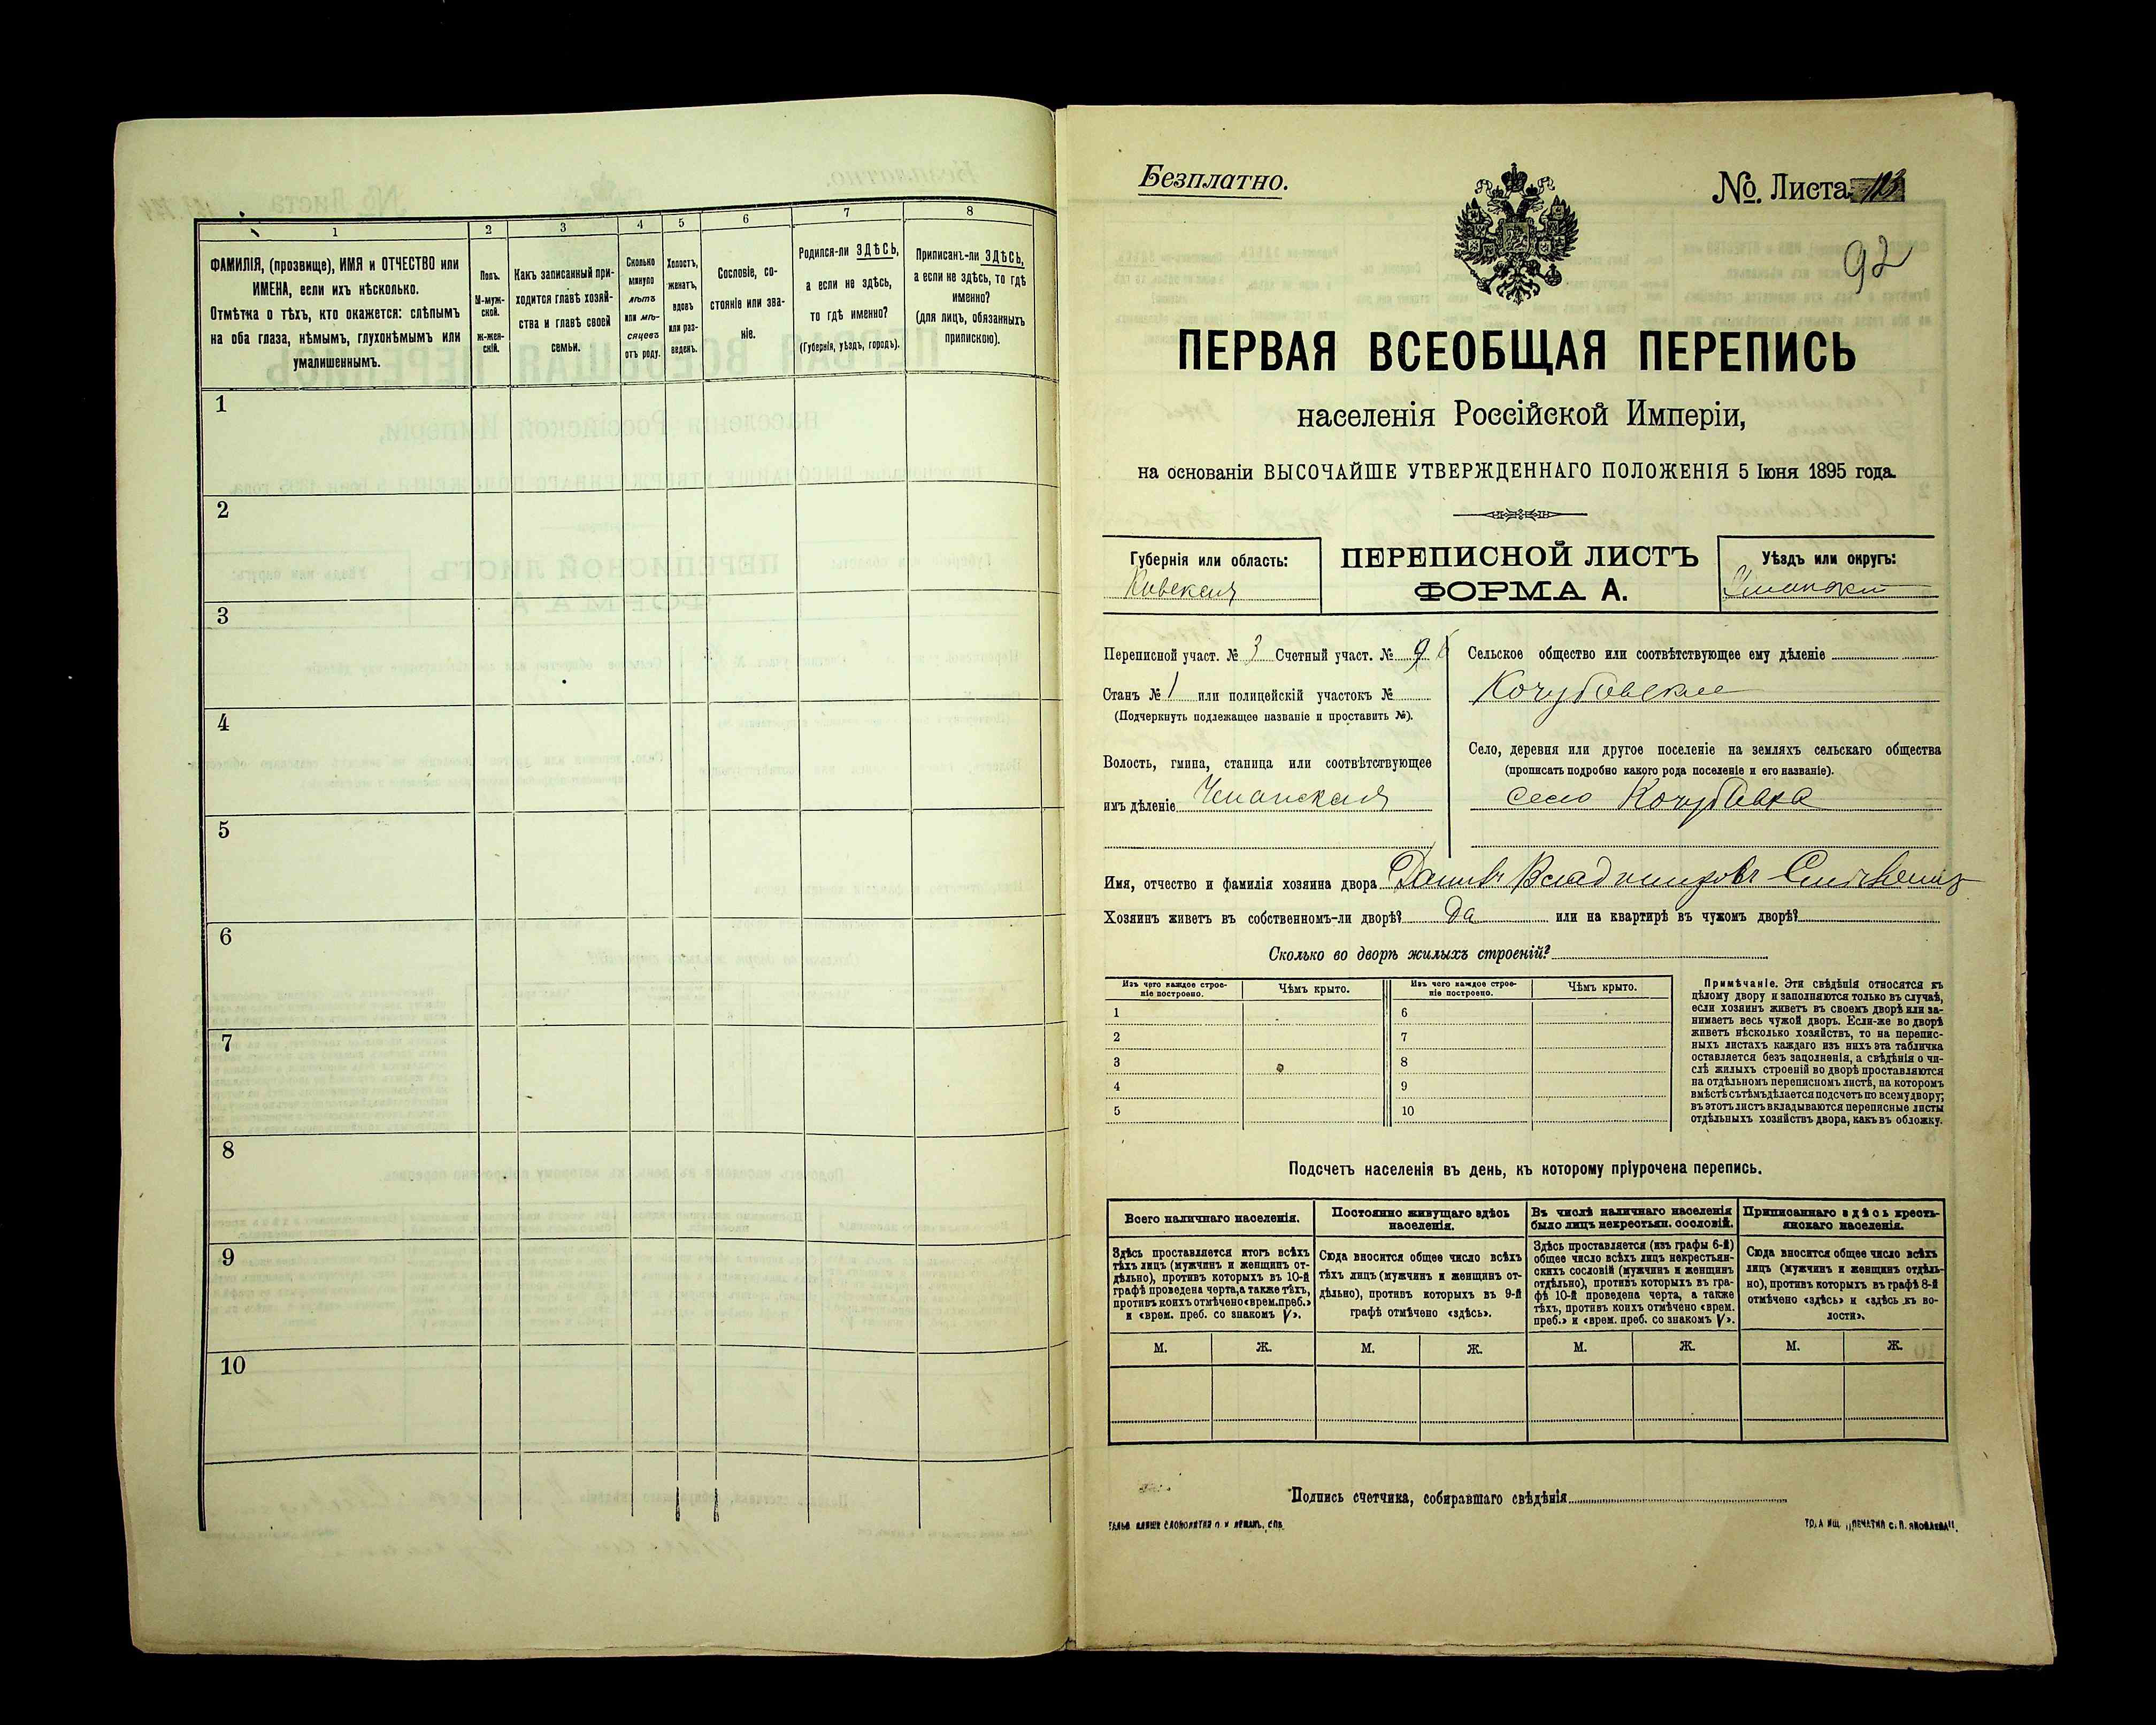 1
2
3
4
5
6
7
8
ФАМИЛІЯ, (прозвище), ИМЯ и ОТЧЕСТВО или
ИМЕНА, если ихъ нѣсколько.
Отмѣтка о тѣхъ, кто окажется: слѣпымъ
на оба глаза, нѣмымъ, глухонѣмымъ или
умалишеннымъ.
Полъ.
М-муж-
ской.
Ж-жен-
скій.
Какъ записанный при-
ходится главѣ хозяй-
ства и главѣ своей
семьи.
Сколько
минуло
лѣтъ
или мѣ-
сяцевъ
отъ роду.
Холостъ,
женатъ,
вдовъ
или раз-
веденъ.
Сословіе, со-
стояніе или зва-
ніе.
Родился-ли ЗДѢСЬ,
а если не здѣсь,
то гдѣ именно?
(Губернія, уѣздъ, городъ).
Приписанъ-ли ЗДѢСЬ,
а если не здѣсь, то гдѣ
именно?
(для лицъ, обязанныхъ
припискою).
1
2
3
4
5
6
7
8
9
10
Безплатно.
№ Листа 113
92
ПЕРВАЯ ВСЕОБЩАЯ ПЕРЕПИСЬ
населенія Россійской Имперіи,
на основаніи ВЫСОЧАЙШЕ УТВЕРЖДЕННАГО ПОЛОЖЕНІЯ 5 Іюня 1895 года.
Губернія или область:
Кіевская
ПЕРЕПИСНОЙ ЛИСТЪ
ФОРМА А.
Уѣздъ или округъ:
Уманскій
Переписной участ. № 3 Счетный участ. № 9
Станъ № 1 или полицейскій участокъ №
(Подчеркнуть подлежащее названіе и проставить №).
Волость, гмина, станица или соотвѣтствующее
имъ дѣленіе
Сельское общество или соотвѣтствующее ему дѣленіе
Кочубѣевское
Село, деревня или другое поселеніе на земляхъ сельскаго общества
(прописать подробно какого рода поселеніе и его названіе).
село Кочубѣевка
Имя, отчество и фамилія хозяина двора Данилъ Владимировъ
Хозяинъ живетъ въ собственномъ-ли дворѣ? Да или на квартирѣ въ чужомъ дворѣ?
Сколько во дворѣ жилыхъ строеній?
Изъ чего каждое строе-
ніе построено.
Чѣмъ крыто.
Изъ чего каждое строе-
ніе построено.
Чѣмъ крыто.
1
2
3
4
5
6
7
8
9
10
Примѣчаніе. Эти свѣдѣнія относятся къ
цѣлому двору и заполняются только въ случаѣ,
если хозяинъ живетъ въ своемъ дворѣ или за-
нимаетъ весь чужой дворъ. Если-же во дворѣ
живетъ нѣсколько хозяйствъ, то на перепис-
ныхъ листахъ каждаго изъ нихъ эта табличка
оставляется безъ заполненія, а свѣдѣнія о чи-
слѣ жилыхъ строеній во дворѣ проставляются
на отдѣльномъ переписномъ листѣ, на которомъ
вмѣстѣ съ тѣмъ дѣлается подсчетъ по всему двору;
въ этотъ листъ вкладываются переписные листы
отдѣльныхъ хозяйствъ двора, какъ въ обложку.
Подсчетъ населенія въ день, къ которому пріурочена перепись.
Всего наличнаго населенія.
Здѣсь проставляется итогъ всѣхъ
тѣхъ лицъ (мужчинъ и женщинъ от-
дѣльно), противъ которыхъ въ 10-й
графѣ проведена черта, а также тѣхъ,
противъ коихъ отмѣчено «врем. преб.»
и «врем. преб. со знакомъ V».
Постоянно живущаго здѣсь
населенія.
Сюда вносится общее число всѣхъ
тѣхъ лицъ (мужчинъ и женщинъ от-
дѣльно), противъ которыхъ въ 9-й
графѣ отмѣчено «здѣсь».
Въ числѣ наличнаго населенія
было лицъ некрестьян. сословій.
Здѣсь проставляется (изъ графы 6-й)
общее число всѣхъ лицъ некрестьян-
скихъ сословій (мужчинъ и женщинъ
отдѣльно), противъ которыхъ въ гра-
фѣ 10-й проведена черта, а также
тѣхъ, противъ коихъ отмѣчено «врем.
преб.» и «врем. преб. со знакомъ V».
Приписаннаго здѣсь кресть-
янскаго населенія.
Сюда вносится общее число всѣхъ
лицъ (мужчинъ и женщинъ отдѣль-
но), противъ которыхъ въ графѣ 8-й
отмѣчено «здѣсь» и «здѣсь къ во-
лости».
М.
Ж.
М.
Ж.
М.
Ж.
М.
Ж.
Подпись счетчика, собиравшаго свѣдѣнія